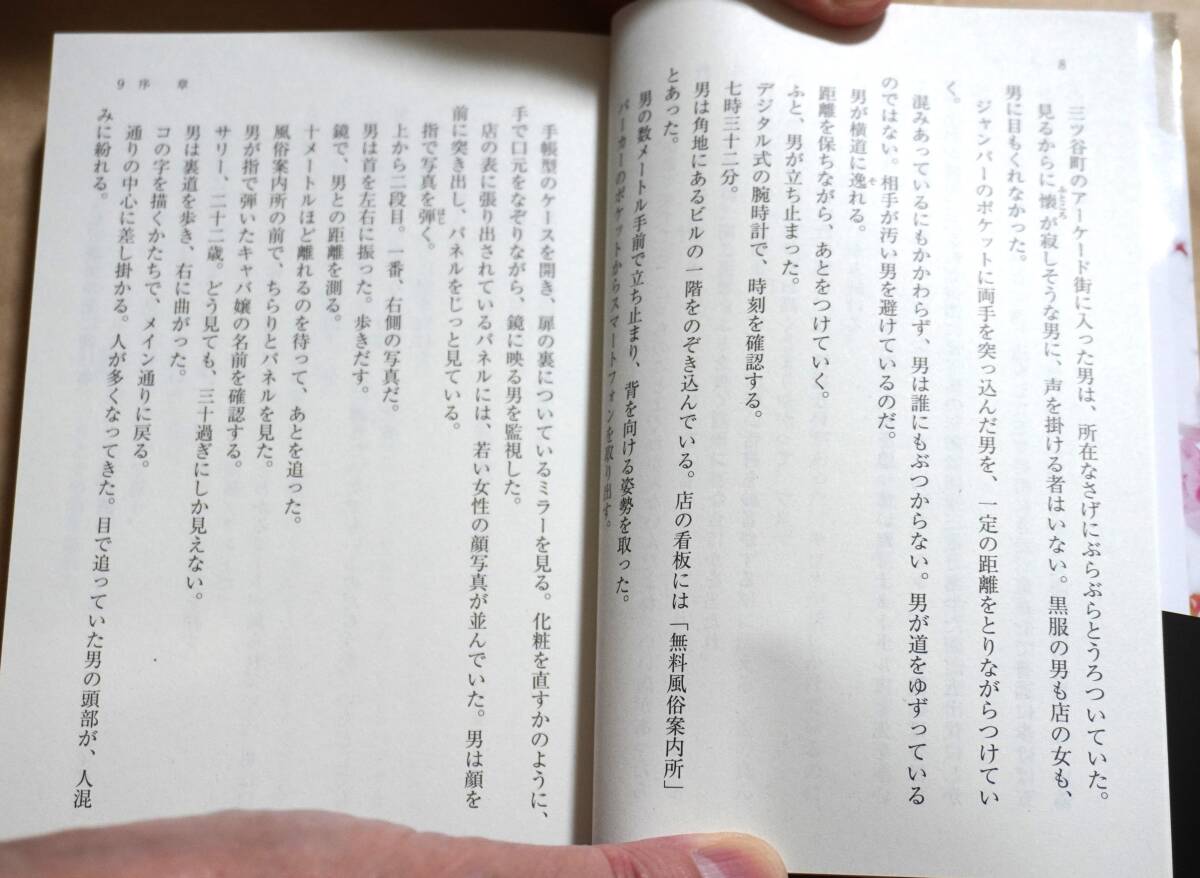 8
三ツ谷町のアーケード街に入った男は、所在なさげにぶらぶらとうろついていた。
見るからに懐が寂しそうな男に、声を掛ける者はいない。黒服の男も店の女も、
男に目もくれなかった。
ジャンパーのポケットに両手を突っ込んだ男を、一定の距離をとりながらつけてい
く。
混みあっているにもかかわらず、男は誰にもぶつからない。男が道をゆずっている
のではない。相手が汚い男を避けているのだ。
男が横道に逸れる。
距離を保ちながら、あとをつけていく。
ふと、男が立ち止まった。
デジタル式の腕時計で、時刻を確認する。
七時三十二分。
男は角地にあるビルの一階をのぞき込んでいる。店の看板には「無料風俗案内所」
とあった。
男の数メートル手前で立ち止まり、背を向ける姿勢を取った。
パーカーのポケットからスマートフォンを取り出す。
手帳型のケースを開き、扉の裏についているミラーを見る。化粧を直すかのように、
手で口元をなぞりながら、鏡に映る男を監視した。
店の表に張り出されているパネルには、若い女性の顔写真が並んでいた。男は顔を
前に突き出し、パネルをじっと見ている。
指で写真を弾く。
上から二段目。一番、右側の写真だ。
男は首を左右に振った。歩きだす。
鏡で、男との距離を測る。
十メートルほど離れるのを待って、あとを追った。
風俗案内所の前で、ちらりとパネルを見た。
男が指で弾いたキャバ嬢の名前を確認する。
サリー、二十二歳。どう見ても、三十過ぎにしか見えない。
男は裏道を歩き、右に曲がった。
コの字を描くかたちで、メイン通りに戻る。
通りの中心に差し掛かる。人が多くなってきた。目で追っていた男の頭部が、人混
みに紛れる。
9 序 章